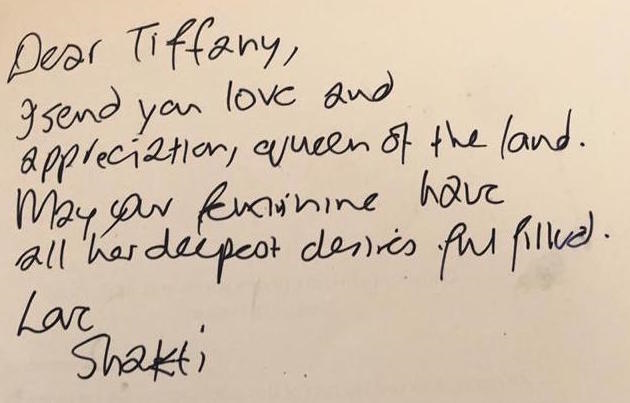 Dear Tiffany,
I send you love and
appreciation, queen of the land.
May your feminine have
all her deepest desires fulfilled.
Love
Shakti